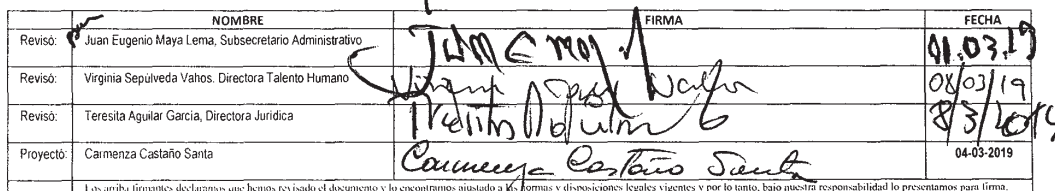 NOMBRE FIRMA FECHA
Revisó: Juan Eugenio Maya Lema, Subsecretario Administrativo
Revisó: Virginia Sepúlveda Vahos. Directora Talento Humano 08/03/19
Revisó: Teresita Aguilar Garcia, Directora Jurídica
Proyectó: Carmenza Castaño Santa Carmenza Castaño Santa 04-03-2019
Los arriba firmantes declaramos que hemos revisado el documento y lo encontramos ajustado a las normas y disposiciones legales vigentes y por lo tanto, bajo nuestra responsabilidad lo presentamos para firma.